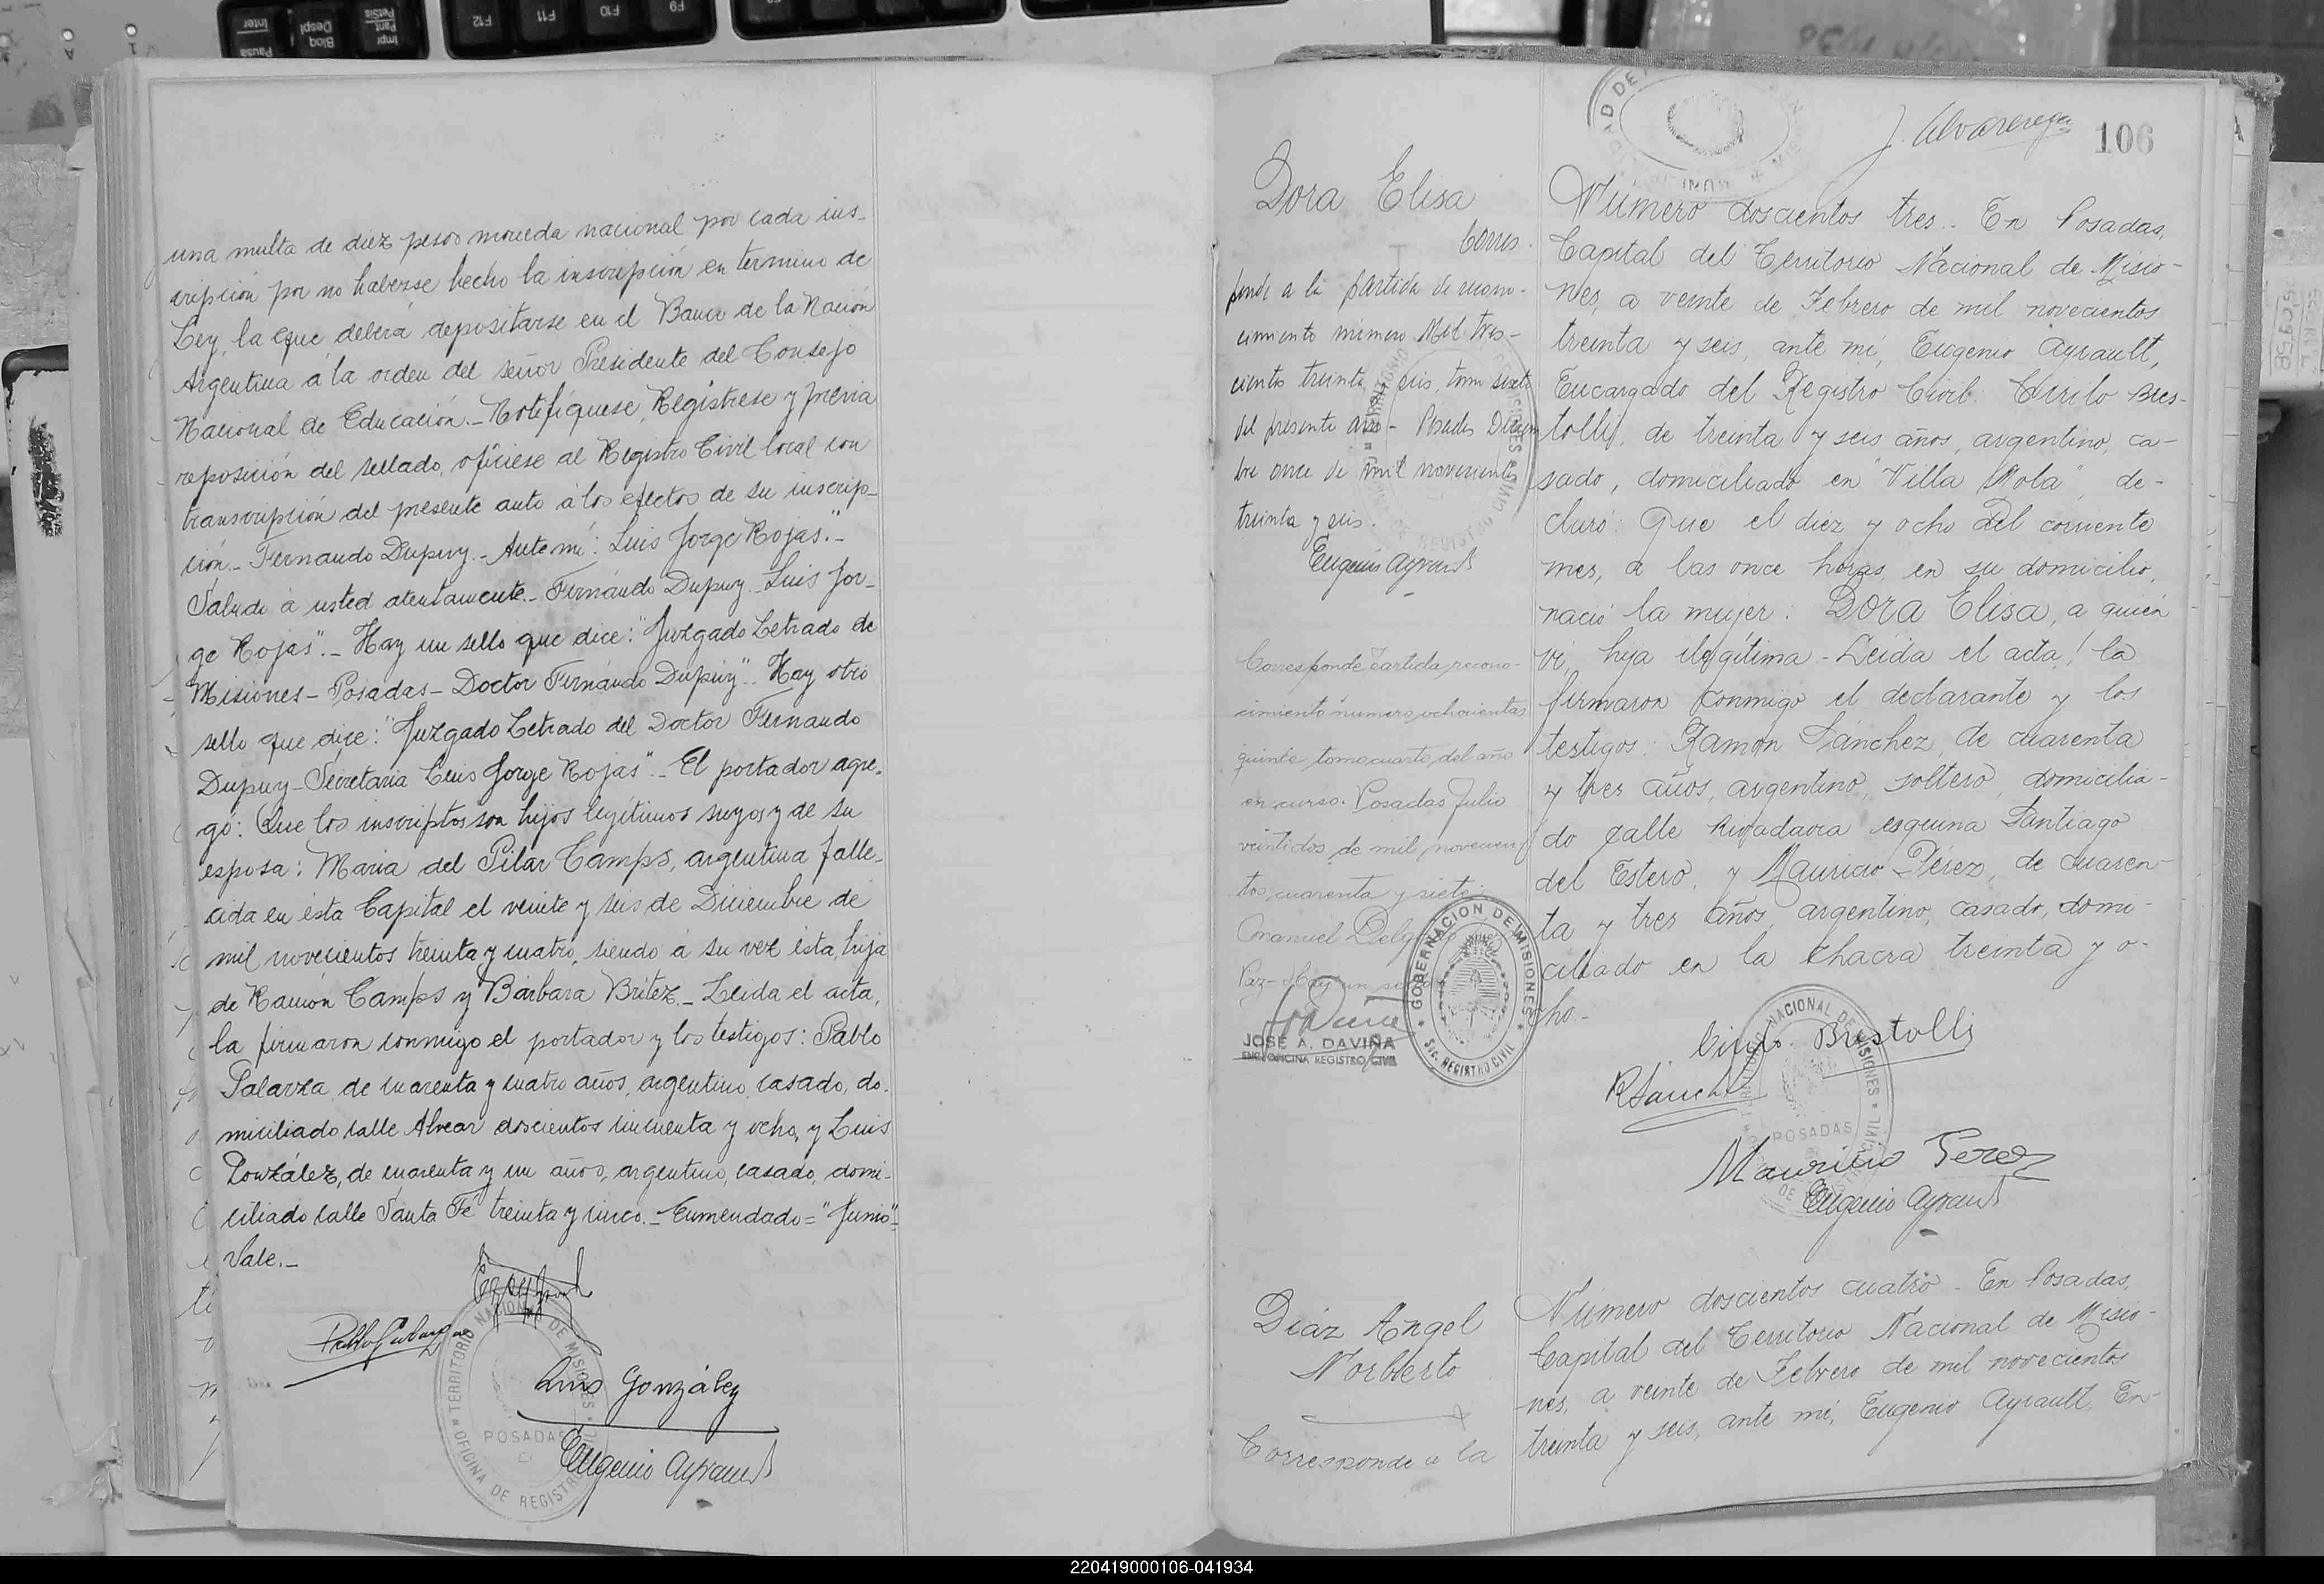 una multa de diez pesos moneda nacional por cada ins-
cripción por no haberse hecho la inscripción en termino de
Ley, la que deberá depositarse en el Banco de la Nación
Argentina á la orden del señor Presidente del Consejo
Nacional de Educación.- Notifíquese, Regístrese y previa
reposición del sellado, ofíciese al Registro Civil local con
transcripción del presente auto á los efectos de su inscrip-
ción.- Fernando Dupuy.- Ante mí: Luis Jorge Rojas."-
Saludo á usted atentamente.- Fernándo Dupuy.- Luis Jor-
ge Rojas".- Hay un sello que dice: "Juzgado Letrado de
Misiones- Posadas- Doctor Fernándo Dupuy".- Hay otro
sello que dice: "Juzgado Letrado del Doctor Fernando
Dupuy- Secretaria Luis Jorge Rojas".- El portador agre-
gó: Que los inscriptos son hijos legítimos suyos y de su
esposa: Maria del Pilar Camps, argentina falle-
cida en ésta Capital el veinte y seis de Diciembre de
mil novecientos treinta y cuatro, siendo á su vez ésta, hija
de Ramón Camps y Bárbara Britez.- Leida el acta,
la firmaron conmigo el portador y los testigos: Pablo
Galarza, de cuarenta y cuatro años, argentino, casado, do-
miciliado calle Alvear doscientos cincuenta y ocho, y Luis
González, de cuarenta y un años, argentino, casado, domi-
ciliado calle Santa Fé treinta y cinco.- Enmendado="Junio"-
Vale.-
Luis González
Eugenio Ayrault
TERRITORIO NACIONAL DE MISIONES
POSADAS
OFICINA DE REGISTRO CIVIL
J. Alvarenga
106
Dora Elisa
Corres-
ponde a la partida de recono-
cimiento número Mil tres-
cientos treinta y seis, tomo sexto
del presente año- Posadas Diciem
bre once de mil novecientos
treinta y seis.
Eugenio Ayrault
Corresponde partida recono-
cimiento número ochocientos
quince tomo cuarto del año
en curso. Posadas Julio
veintidos de mil novecien
tos cuarenta y siete.
Emanuel Delgado
Paz- Hay un sello
JOSE A. DAVIÑA
ENC. OFICINA REGISTRO CIVIL
GOBERNACION DE MISIONES
REGISTRO CIVIL
Número doscientos tres.- En Posadas,
Capital del Territorio Nacional de Misio-
nes, a veinte de Febrero de mil novecientos
treinta y seis, ante mí, Eugenio Ayrault,
Encargado del Registro Civil: Cirilo Bres-
tolli, de treinta y seis años, argentino, ca-
sado, domiciliado en "Villa Mola", de-
claró: Que el diez y ocho del corriente
mes, a las once horas, en su domicilio,
nació la mujer: Dora Elisa, a quién
ví, hija ilegítima.- Leída el acta, la
firmaron conmigo el declarante y los
testigos: Ramón Sánchez, de cuarenta
y tres años, argentino, soltero, domicilia-
do calle Rivadavia esquina Santiago
del Estero, y Mauricio Pérez, de cuaren-
ta y tres años, argentino, casado, domi-
ciliado en la chacra treinta y o-
cho.-
Cirilo Brestolli
RSanchez
Mauricio Perez
Eugenio Ayrault
POSADAS
Diáz Angel
Norberto
Corresponde a la
Número doscientos cuatro.- En Posadas,
Capital del Territorio Nacional de Misio-
nes, a veinte de Febrero de mil novecientos
treinta y seis, ante mí, Eugenio Ayrault, En-
220419000106-041934